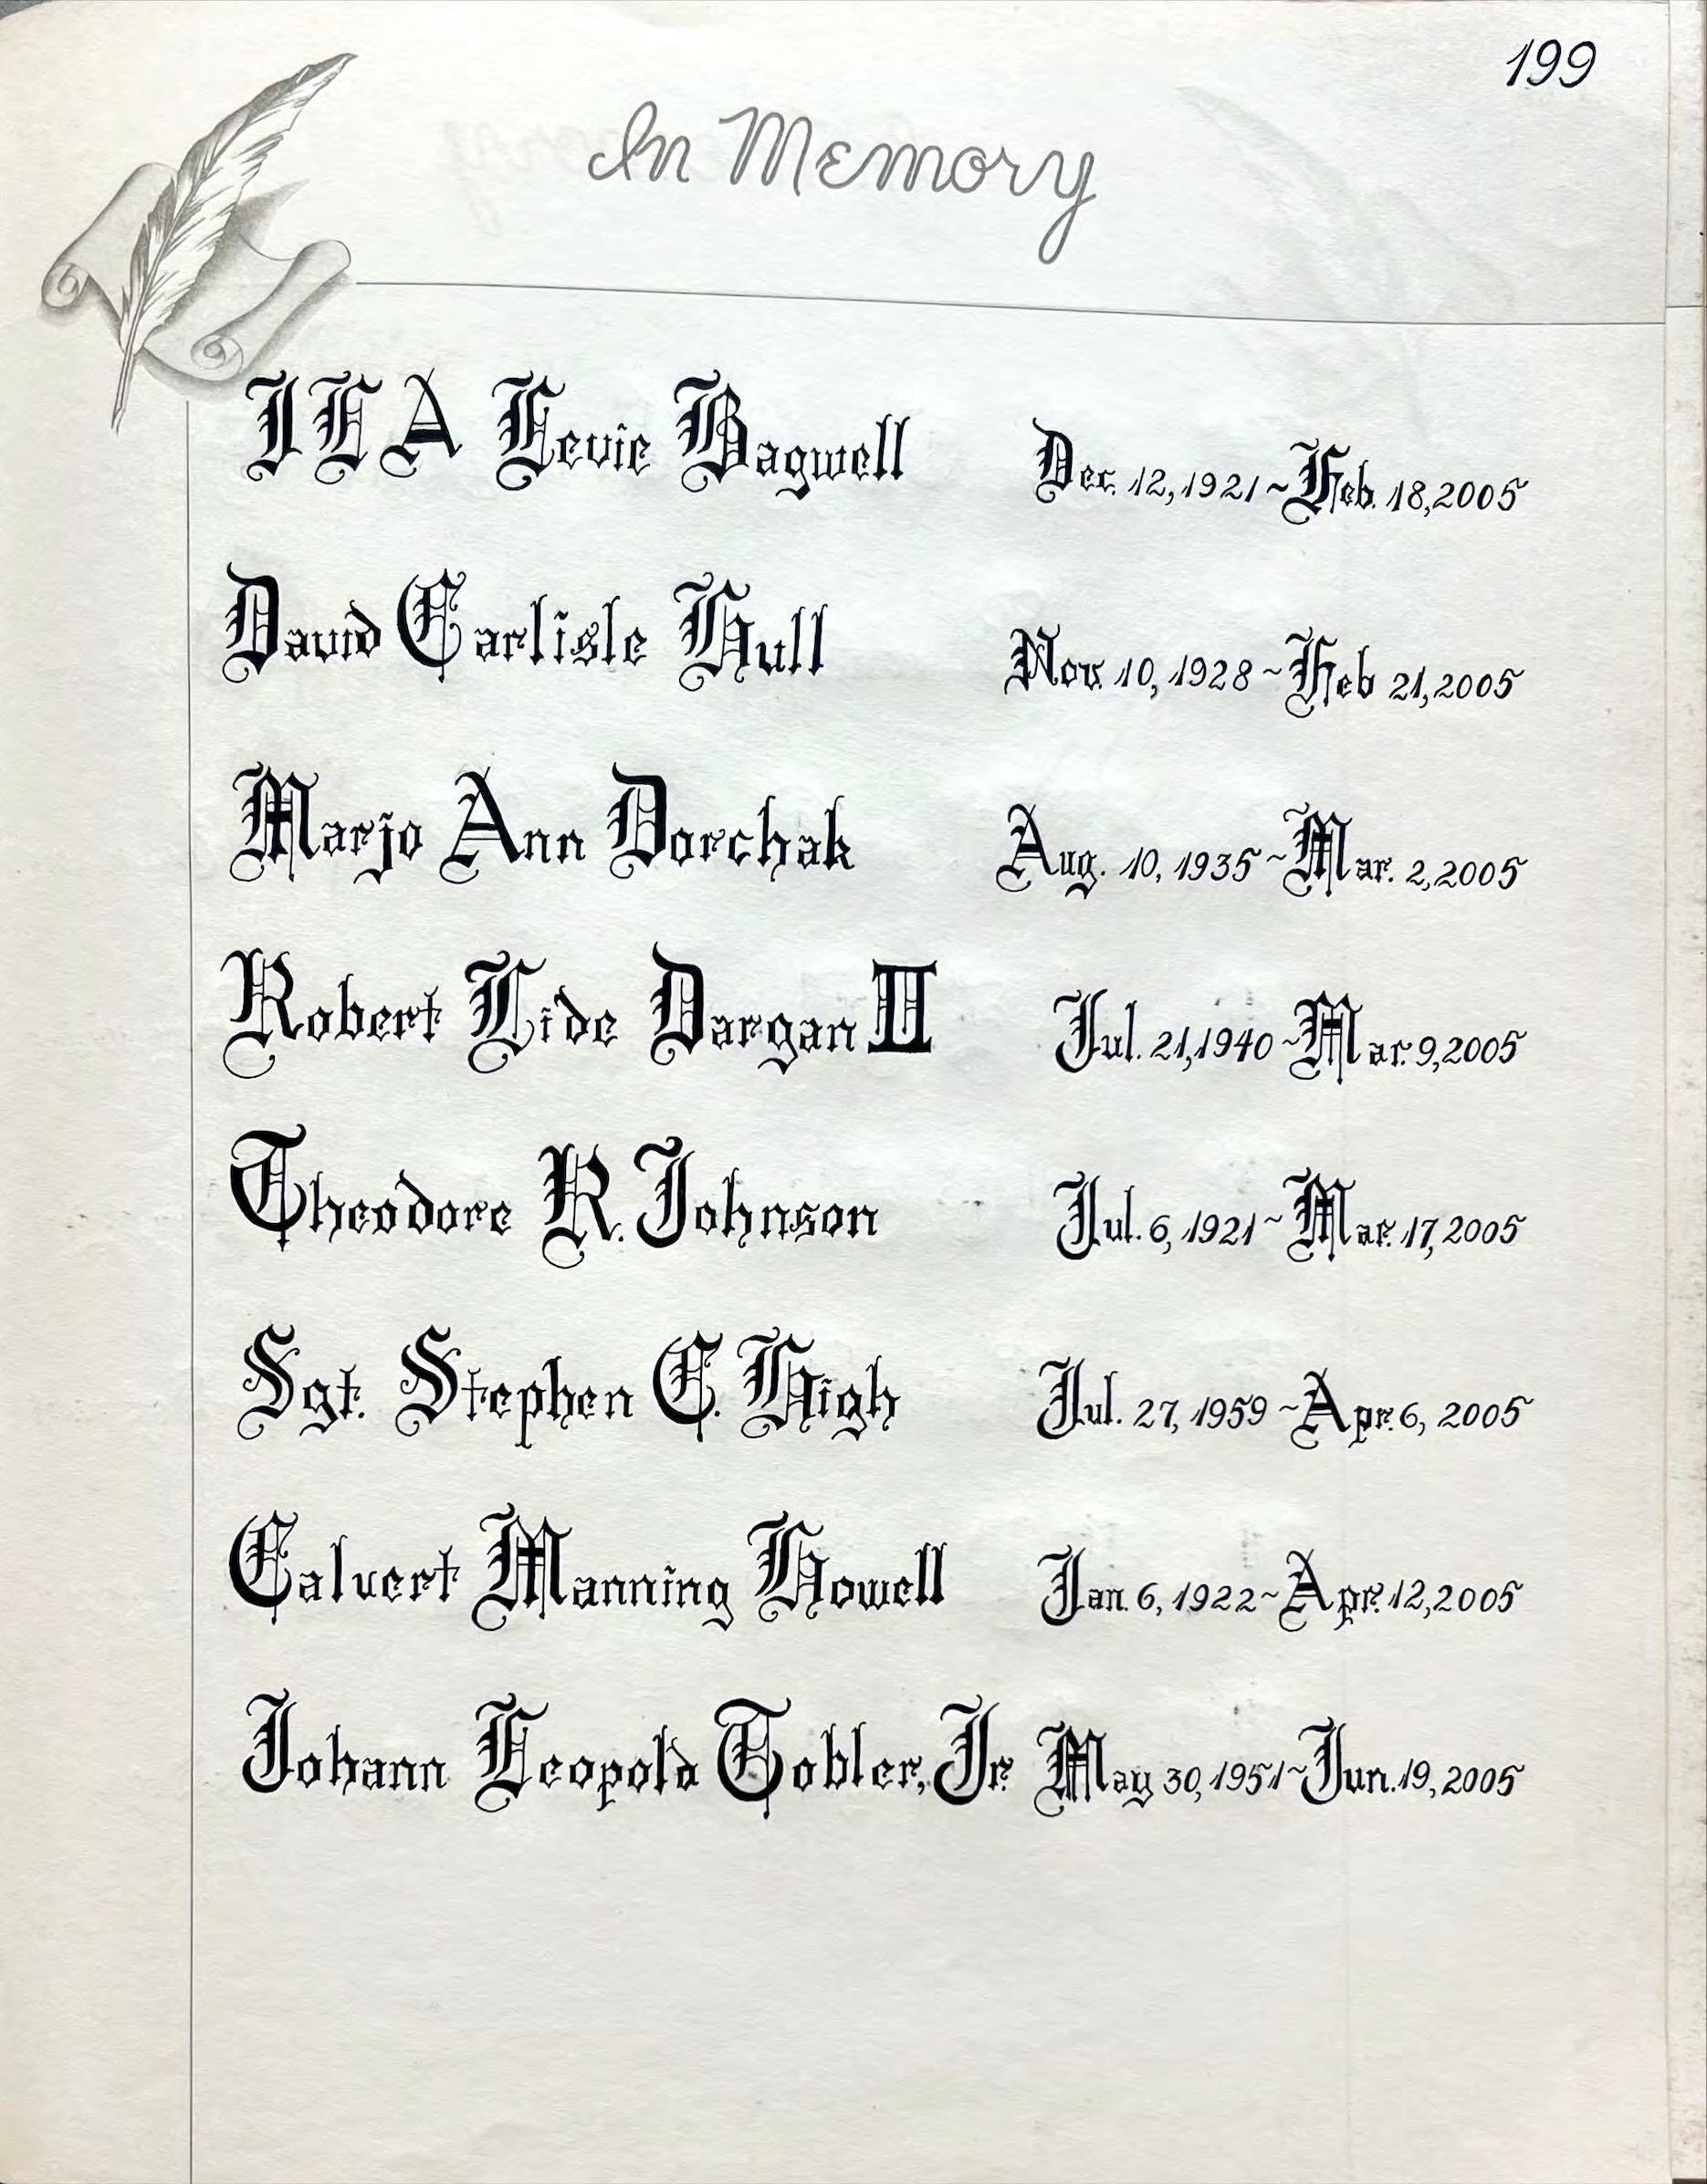 199
In Memory
ILA Levie Bagwell Dec. 12, 1921 ~ Feb. 18, 2005
David Carlisle Hull Nov. 10, 1928 ~ Feb 21, 2005
Marjo Ann Dorchak Aug. 10, 1935 ~ Mar. 2, 2005
Robert Lide Dargan II Jul. 21, 1940 ~ Mar. 9, 2005
Theodore R. Johnson Jul. 6, 1921 ~ Mar. 17, 2005
Sgt. Stephen C. High Jul. 27, 1959 ~ Apr. 6, 2005
Calvert Manning Howell Jan. 6, 1922 ~ Apr. 12, 2005
Johann Leopold Tobler, Jr. May 30, 1951 ~ Jun. 19, 2005